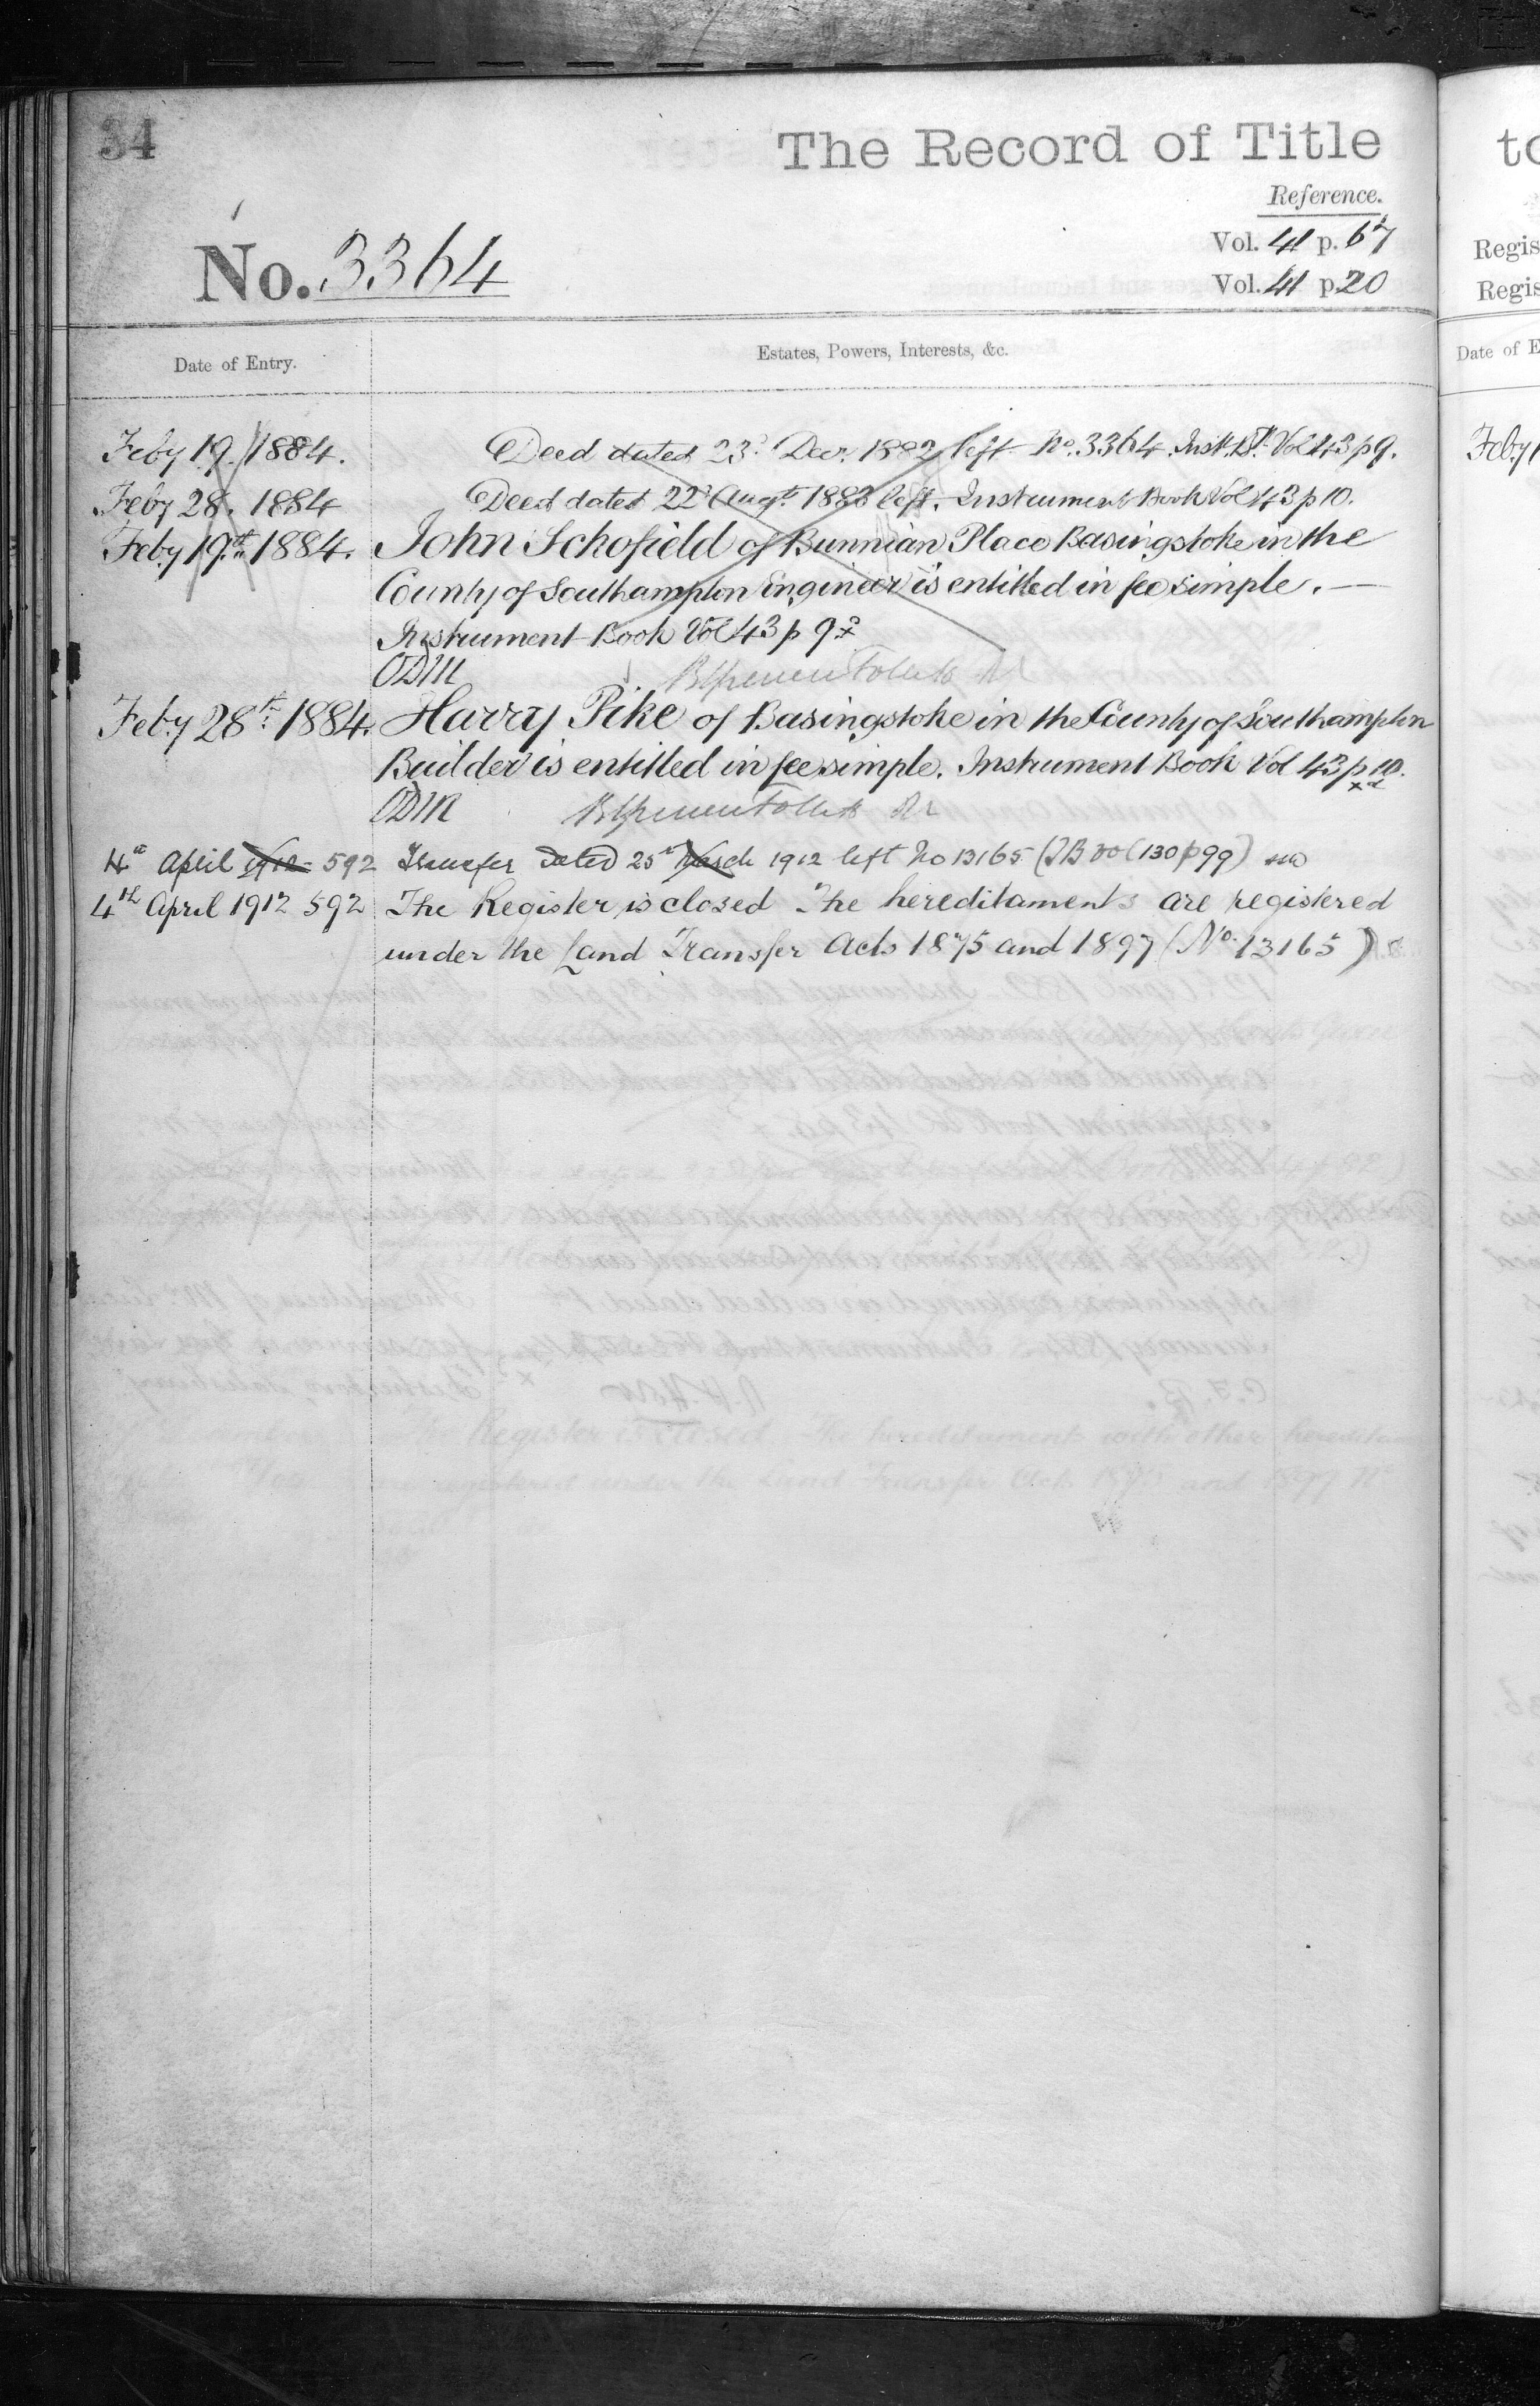 34
The Record of Title
Reference.
No. 3364
Vol. 41 p. 67
Vol. 41 p 20
Date of Entry.
Estates, Powers, Interests, &c.
Feby 19. 1884. Deed dated 23d. Decr. 1882 left No. 3364. Inst. Bk. Vol 43 p 9.
Feby 28. 1884 Deed dated 22d Augt. 1883 left. Instrument Book Vol 43 p 10.
Feby. 19th. 1884. John Schofield of Bunnian Place Basingstoke in the
County of Southampton Engineer is entitled in fee simple. —
Instrument Book Vol 43 p 9
ODM
Feby 28th. 1884. Harry Pike of Basingstoke in the County of Southampton
Builder is entitled in fee simple. Instrument Book Vol 43 p 10.
ODM
4th April 1912 592 Transfer dated 25th March 1912 left No 13165 (IB vol 130 p 99)
4th April 1912 592 The Register is closed The hereditaments are registered
under the Land Transfer Acts 1875 and 1897 (No. 13165)
to
Regis
Regis
Date of E
Feby 1